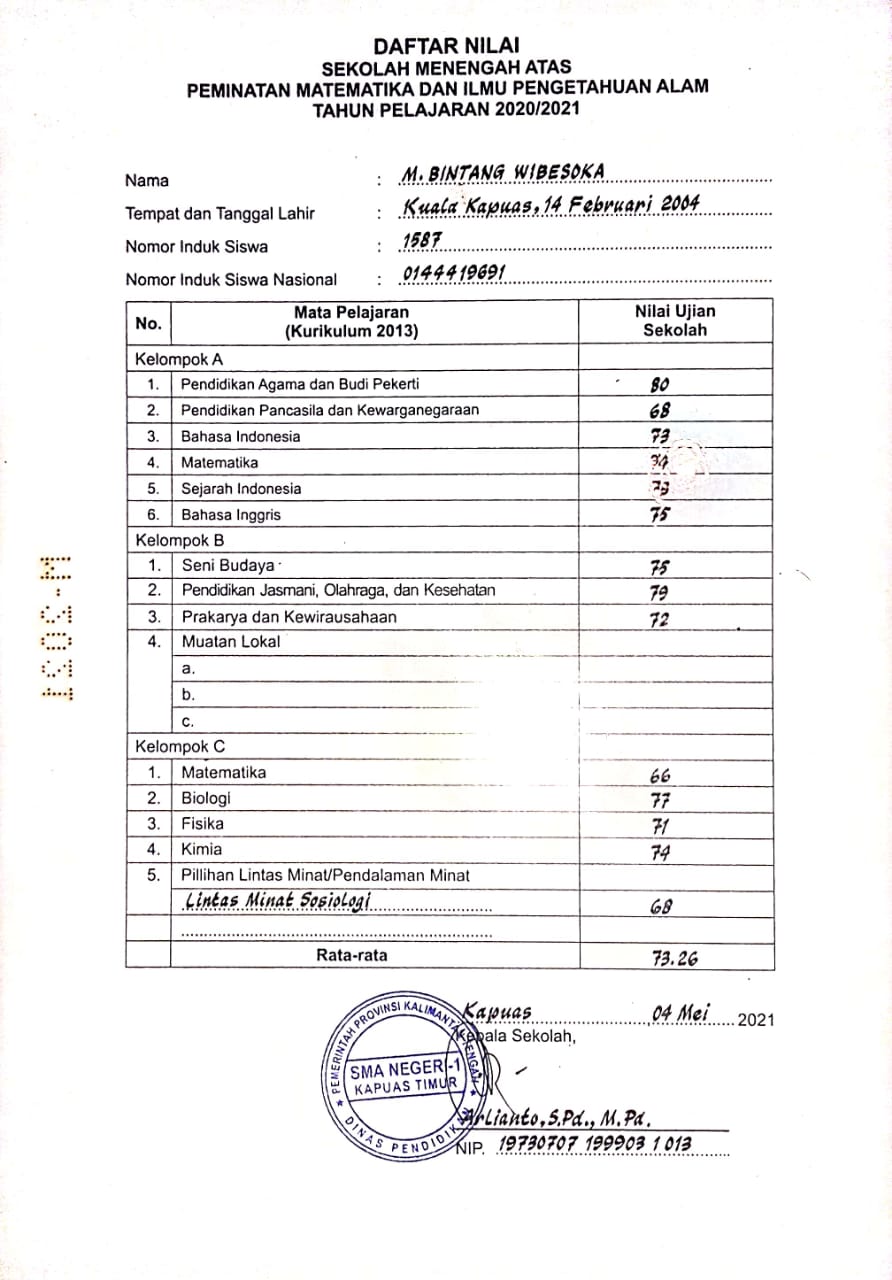 DAFTAR NILAI
SEKOLAH MENENGAH ATAS
PEMINATAN MATEMATIKA DAN ILMU PENGETAHUAN ALAM
TAHUN PELAJARAN 2020/2021
Nama : M. BINTANG WIBESOKA
Tempat dan Tanggal Lahir : Kuala Kapuas, 14 Februari 2004
Nomor Induk Siswa : 1587
Nomor Induk Siswa Nasional : 0144419691
No. Mata Pelajaran (Kurikulum 2013) Nilai Ujian Sekolah
Kelompok A
1. Pendidikan Agama dan Budi Pekerti 80
2. Pendidikan Pancasila dan Kewarganegaraan 68
3. Bahasa Indonesia 73
4. Matematika
5. Sejarah Indonesia
6. Bahasa Inggris 75
Kelompok B
1. Seni Budaya 75
2. Pendidikan Jasmani, Olahraga, dan Kesehatan 79
3. Prakarya dan Kewirausahaan 72
4. Muatan Lokal
a.
b.
c.
Kelompok C
1. Matematika 66
2. Biologi 77
3. Fisika 71
4. Kimia 74
5. Pillihan Lintas Minat/Pendalaman Minat
Lintas Minat Sosiologi 68
Rata-rata 73.26
Kapuas, 04 Mei 2021
Kepala Sekolah,
PEMERINTAH PROVINSI KALIMANTAN TENGAH
SMA NEGERI-1
KAPUAS TIMUR
DINAS PENDIDIKAN
Arlianto, S.Pd., M.Pd.
NIP. 19730707 199903 1 013